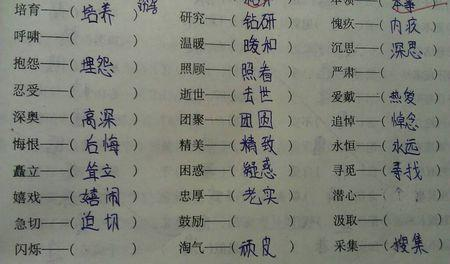 培育——(培养) 研究——(钻研) 愧疚——(内疚)
呼啸——( ) 温暖——(暖和) 沉思——(深思)
抱怨——(埋怨) 照顾——(照看) 严肃——( )
忍受——( ) 逝世——(去世) 爱戴——(热爱)
深奥——(高深) 团聚——(团圆) 追悼——(悼念)
悔恨——(后悔) 精美——(精致) 永恒——(永远)
矗立——(耸立) 困惑——(疑惑) 寻觅——(寻找)
嬉戏——(嬉闹) 忠厚——(老实) 潜心——( )
急切——(迫切) 鼓励——( ) 汲取——( )
闪烁——( ) 淘气——(顽皮) 采集——(搜集)